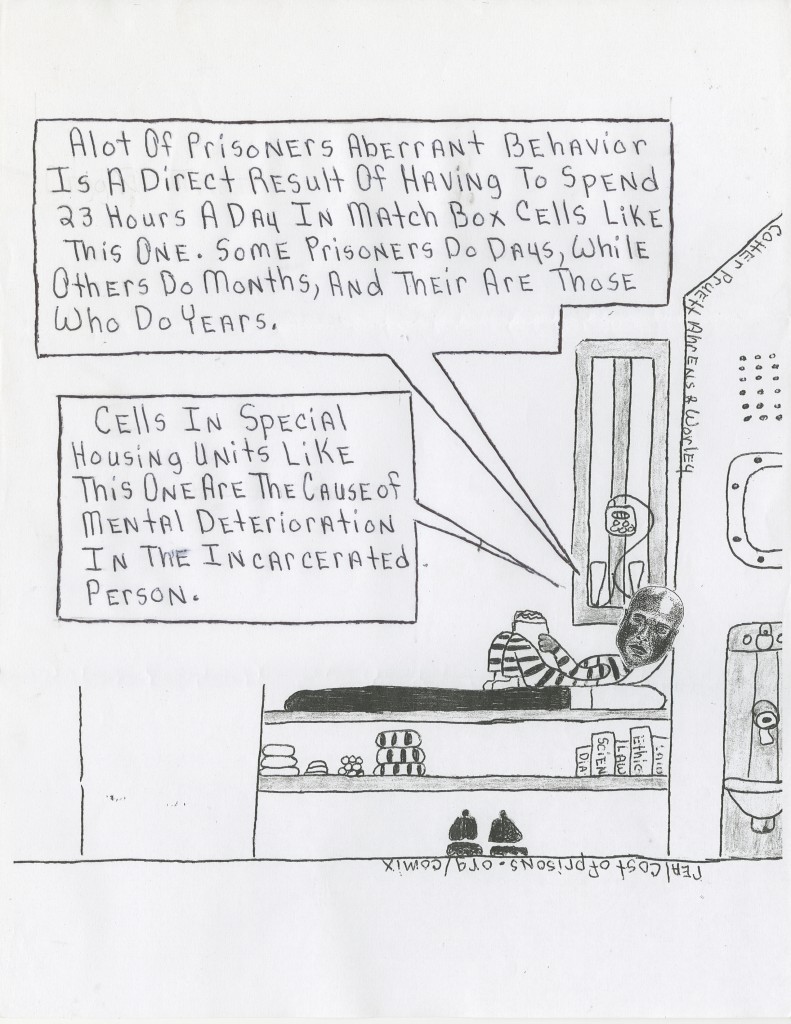 Alot Of Prisoners Aberrant Behavior
Is A Direct Result Of Having To Spend
23 Hours A Day In Match Box Cells Like
This One. Some Prisoners Do Days, While
Others Do Months, And Their Are Those
Who Do Years.
Cells In Special
Housing Units Like
This One Are The Cause of
Mental Deterioration
In The Incarcerated
Person.
Ahrens & Worley
Dia
Scien
Law
Ethic
realcostofprisons.org/comix